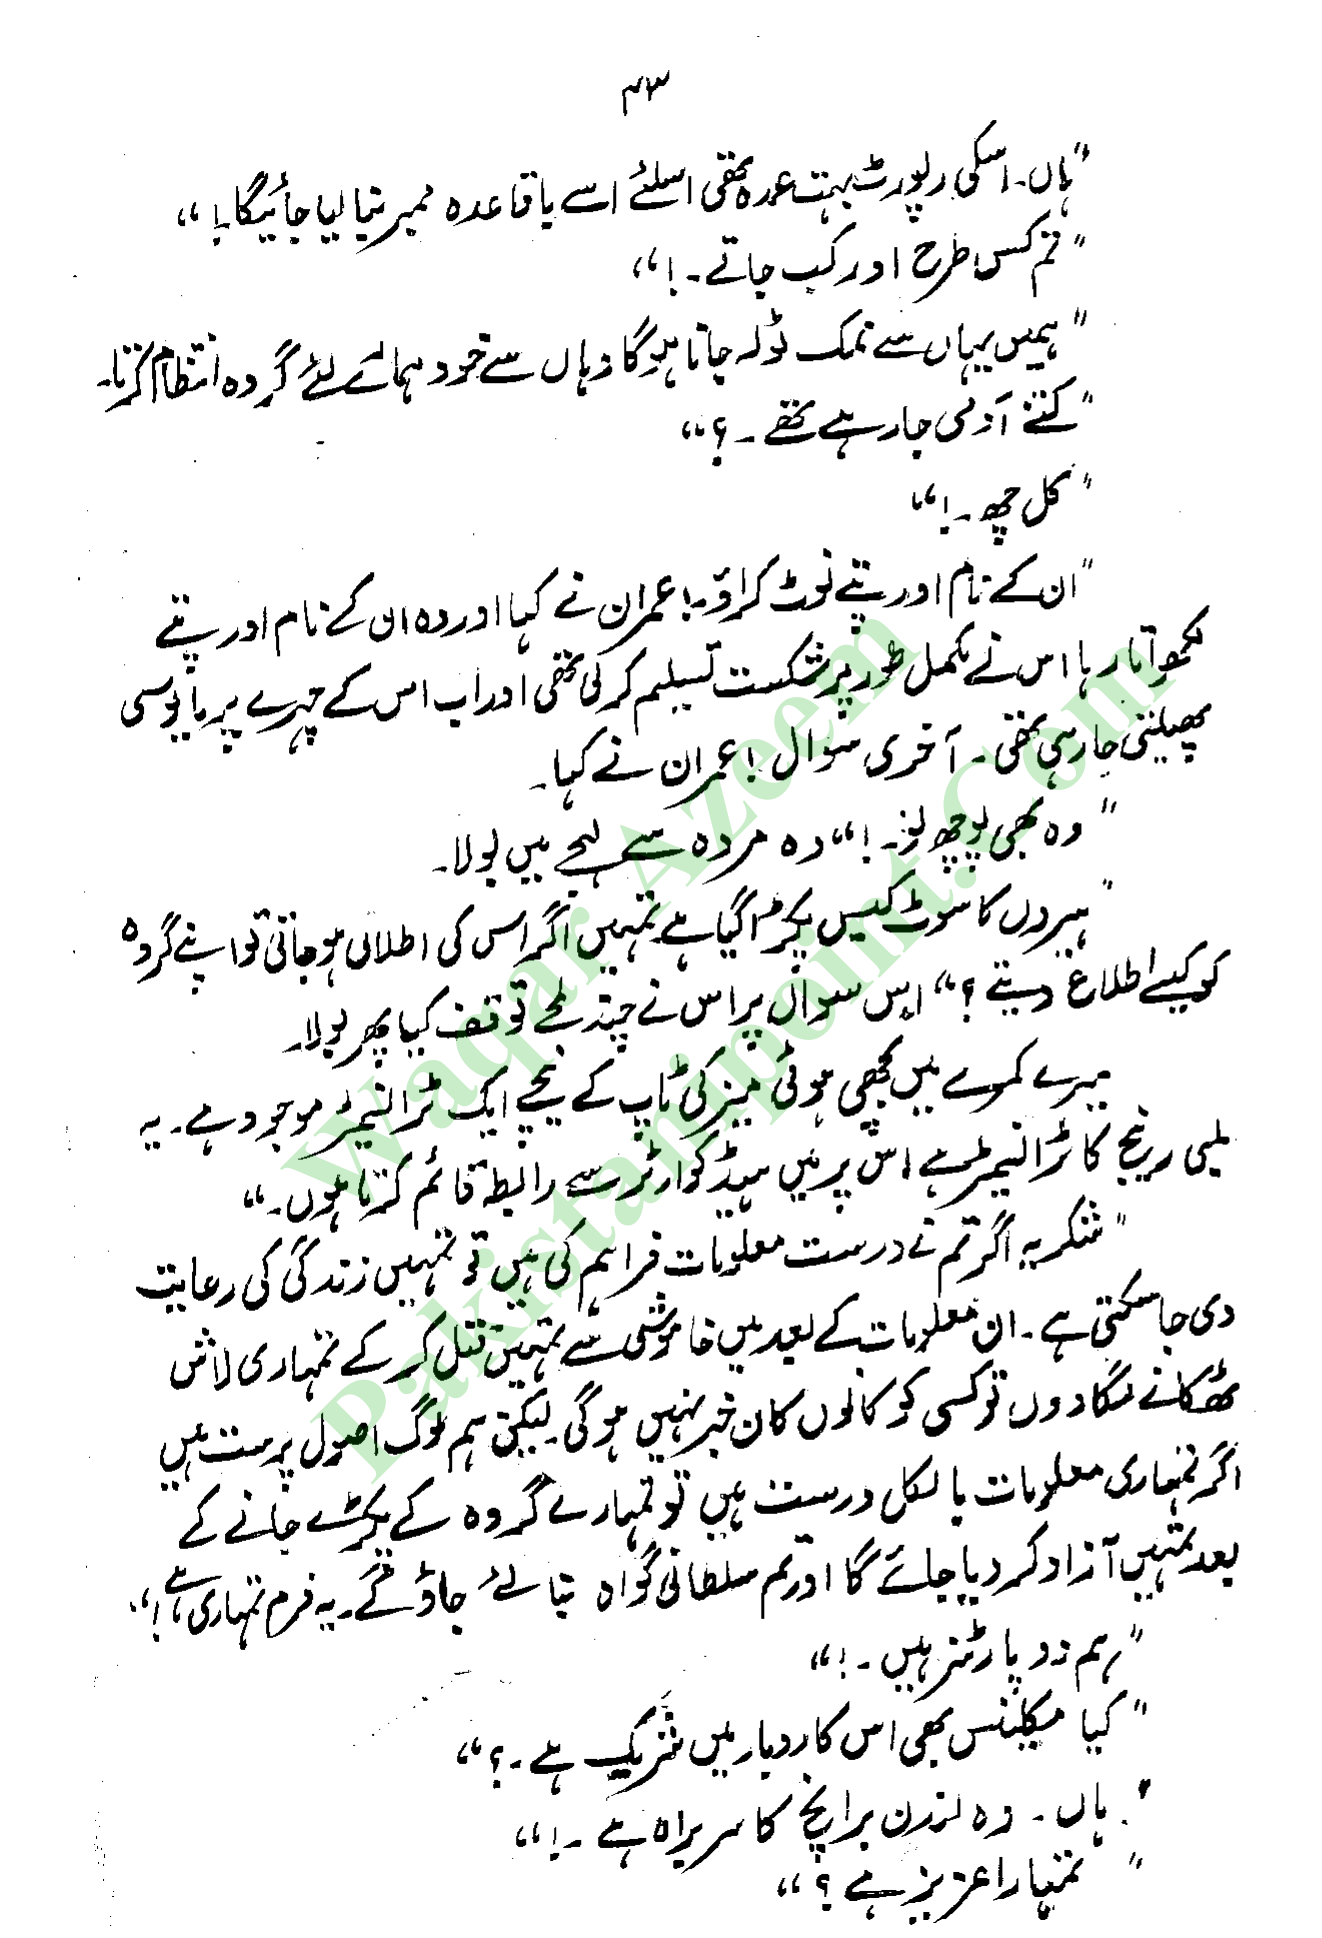 ۴۳
"ہاں۔ اسکی رپورٹ بہت عمدہ تھی اسلئے اسے باقاعدہ ممبر بنا لیا جائیگا۔!"
"تم کس طرح اور کب جاتے۔!"
"ہمیں یہاں سے نمک ٹولہ جانا ہوگا وہاں سے خود ہمارے لئے گروہ انتظام کرتا۔
"کتنے آدمی جا رہے تھے۔؟"
"کل چھ۔!"
"ان کے نام اور پتے نوٹ کراؤ۔! عمران نے کہا اور وہ ان کے نام اور پتے
لکھواتا رہا اس نے مکمل طور پر شکست تسلیم کر لی تھی اور اب اس کے چہرے پر مایوسی
پھیلتی جا رہی تھی۔ آخری سوال! عمران نے کہا۔
"وہ بھی پوچھ لو۔!" وہ مردہ سے لہجے میں بولا۔
"ہیروں کا سوٹ کیس پکڑا گیا ہے تمہیں اگر اس کی اطلاع ہو جاتی تو اپنے گروہ
کو کیسے اطلاع دیتے؟" اس سوال پر اس نے چند لمحے توقف کیا پھر بولا۔
میرے کمرے میں بچھی ہوئی میز کی ٹاپ کے نیچے ایک ٹرانسمیٹر موجود ہے۔ یہ
لمبی رینج کا ٹرانسمیٹر ہے اس پر میں ہیڈ کوارٹر سے رابطہ قائم کرتا ہوں۔"
"شکریہ اگر تم نے درست معلومات فراہم کی ہیں تو تمہیں زندگی کی رعایت
دی جا سکتی ہے۔ ان معلومات کے بعد میں خاموشی سے تمہیں قتل کر کے تمہاری لاش
ٹھکانے لگا دوں تو کسی کو کانوں کان خبر نہیں ہو گی۔ لیکن ہم لوگ اصول پرست ہیں
اگر تمہاری معلومات بالکل درست ہیں تو تمہارے گروہ کے پکڑے جانے کے
بعد تمہیں آزاد کر دیا جائے گا اور تم سلطانی گواہ بنا لئے جاؤ گے۔ یہ فرم تمہاری ہے!"
"ہم دو پارٹنر ہیں۔!"
"کیا میکلینس بھی اس کاروبار میں شریک ہے۔؟"
"ہاں۔ وہ لندن برانچ کا سربراہ ہے۔!"
"تمہارا عزیز ہے؟"
Waqar Azeem
Pakistanipoint.Com